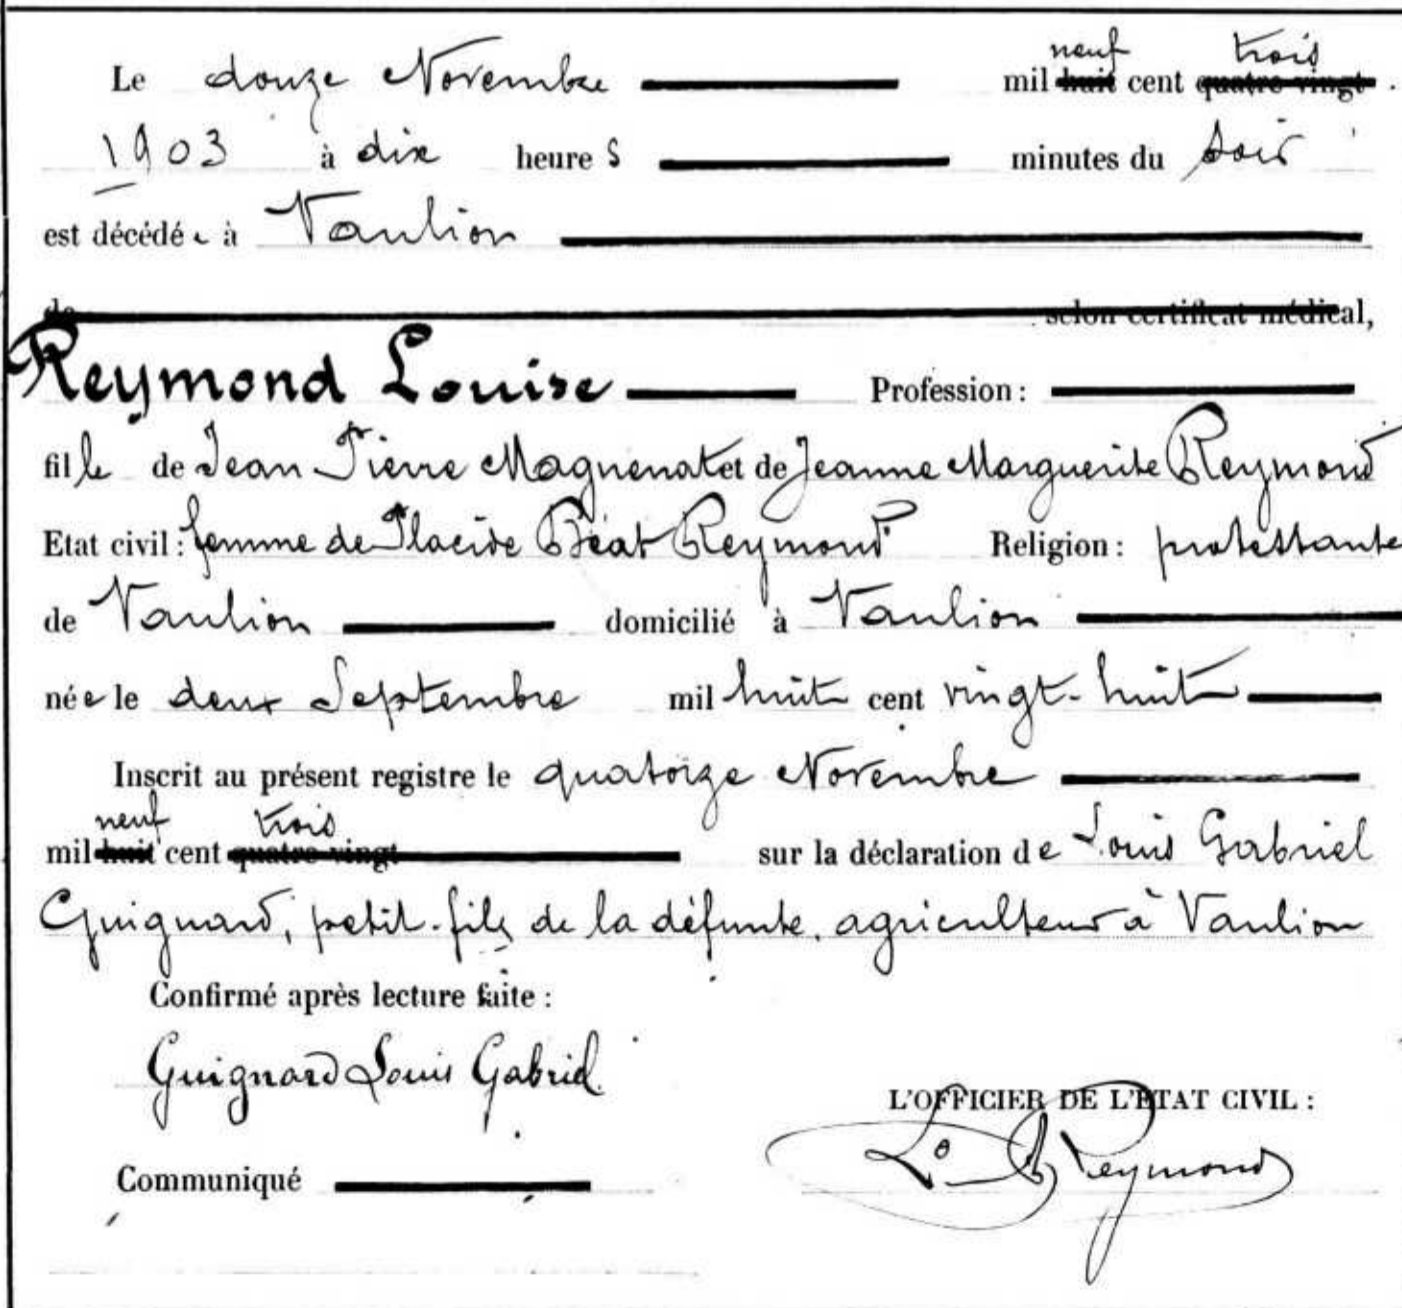 Le douze Novembre mil neuf huit cent trois quatre-vingt.
1903 à dix heures minutes du soir
est décédée à Vaulion
de selon certificat médical,
Reymond Louise Profession :
fille de Jean Pierre Magnenat et de Jeanne Marguerite Reymond
Etat civil : femme de Placide Béat Reymond Religion : protestante
de Vaulion domicilié à Vaulion
née le deux Septembre mil huit cent vingt-huit
Inscrit au présent registre le quatorze Novembre
mil neuf huit cent trois quatre-vingt sur la déclaration de Louis Gabriel
Guignard, petit-fils de la défunte, agriculteur à Vaulion
Confirmé après lecture faite :
Guignard Louis Gabriel.
L'OFFICIER DE L'ETAT CIVIL :
Reymond
Communiqué